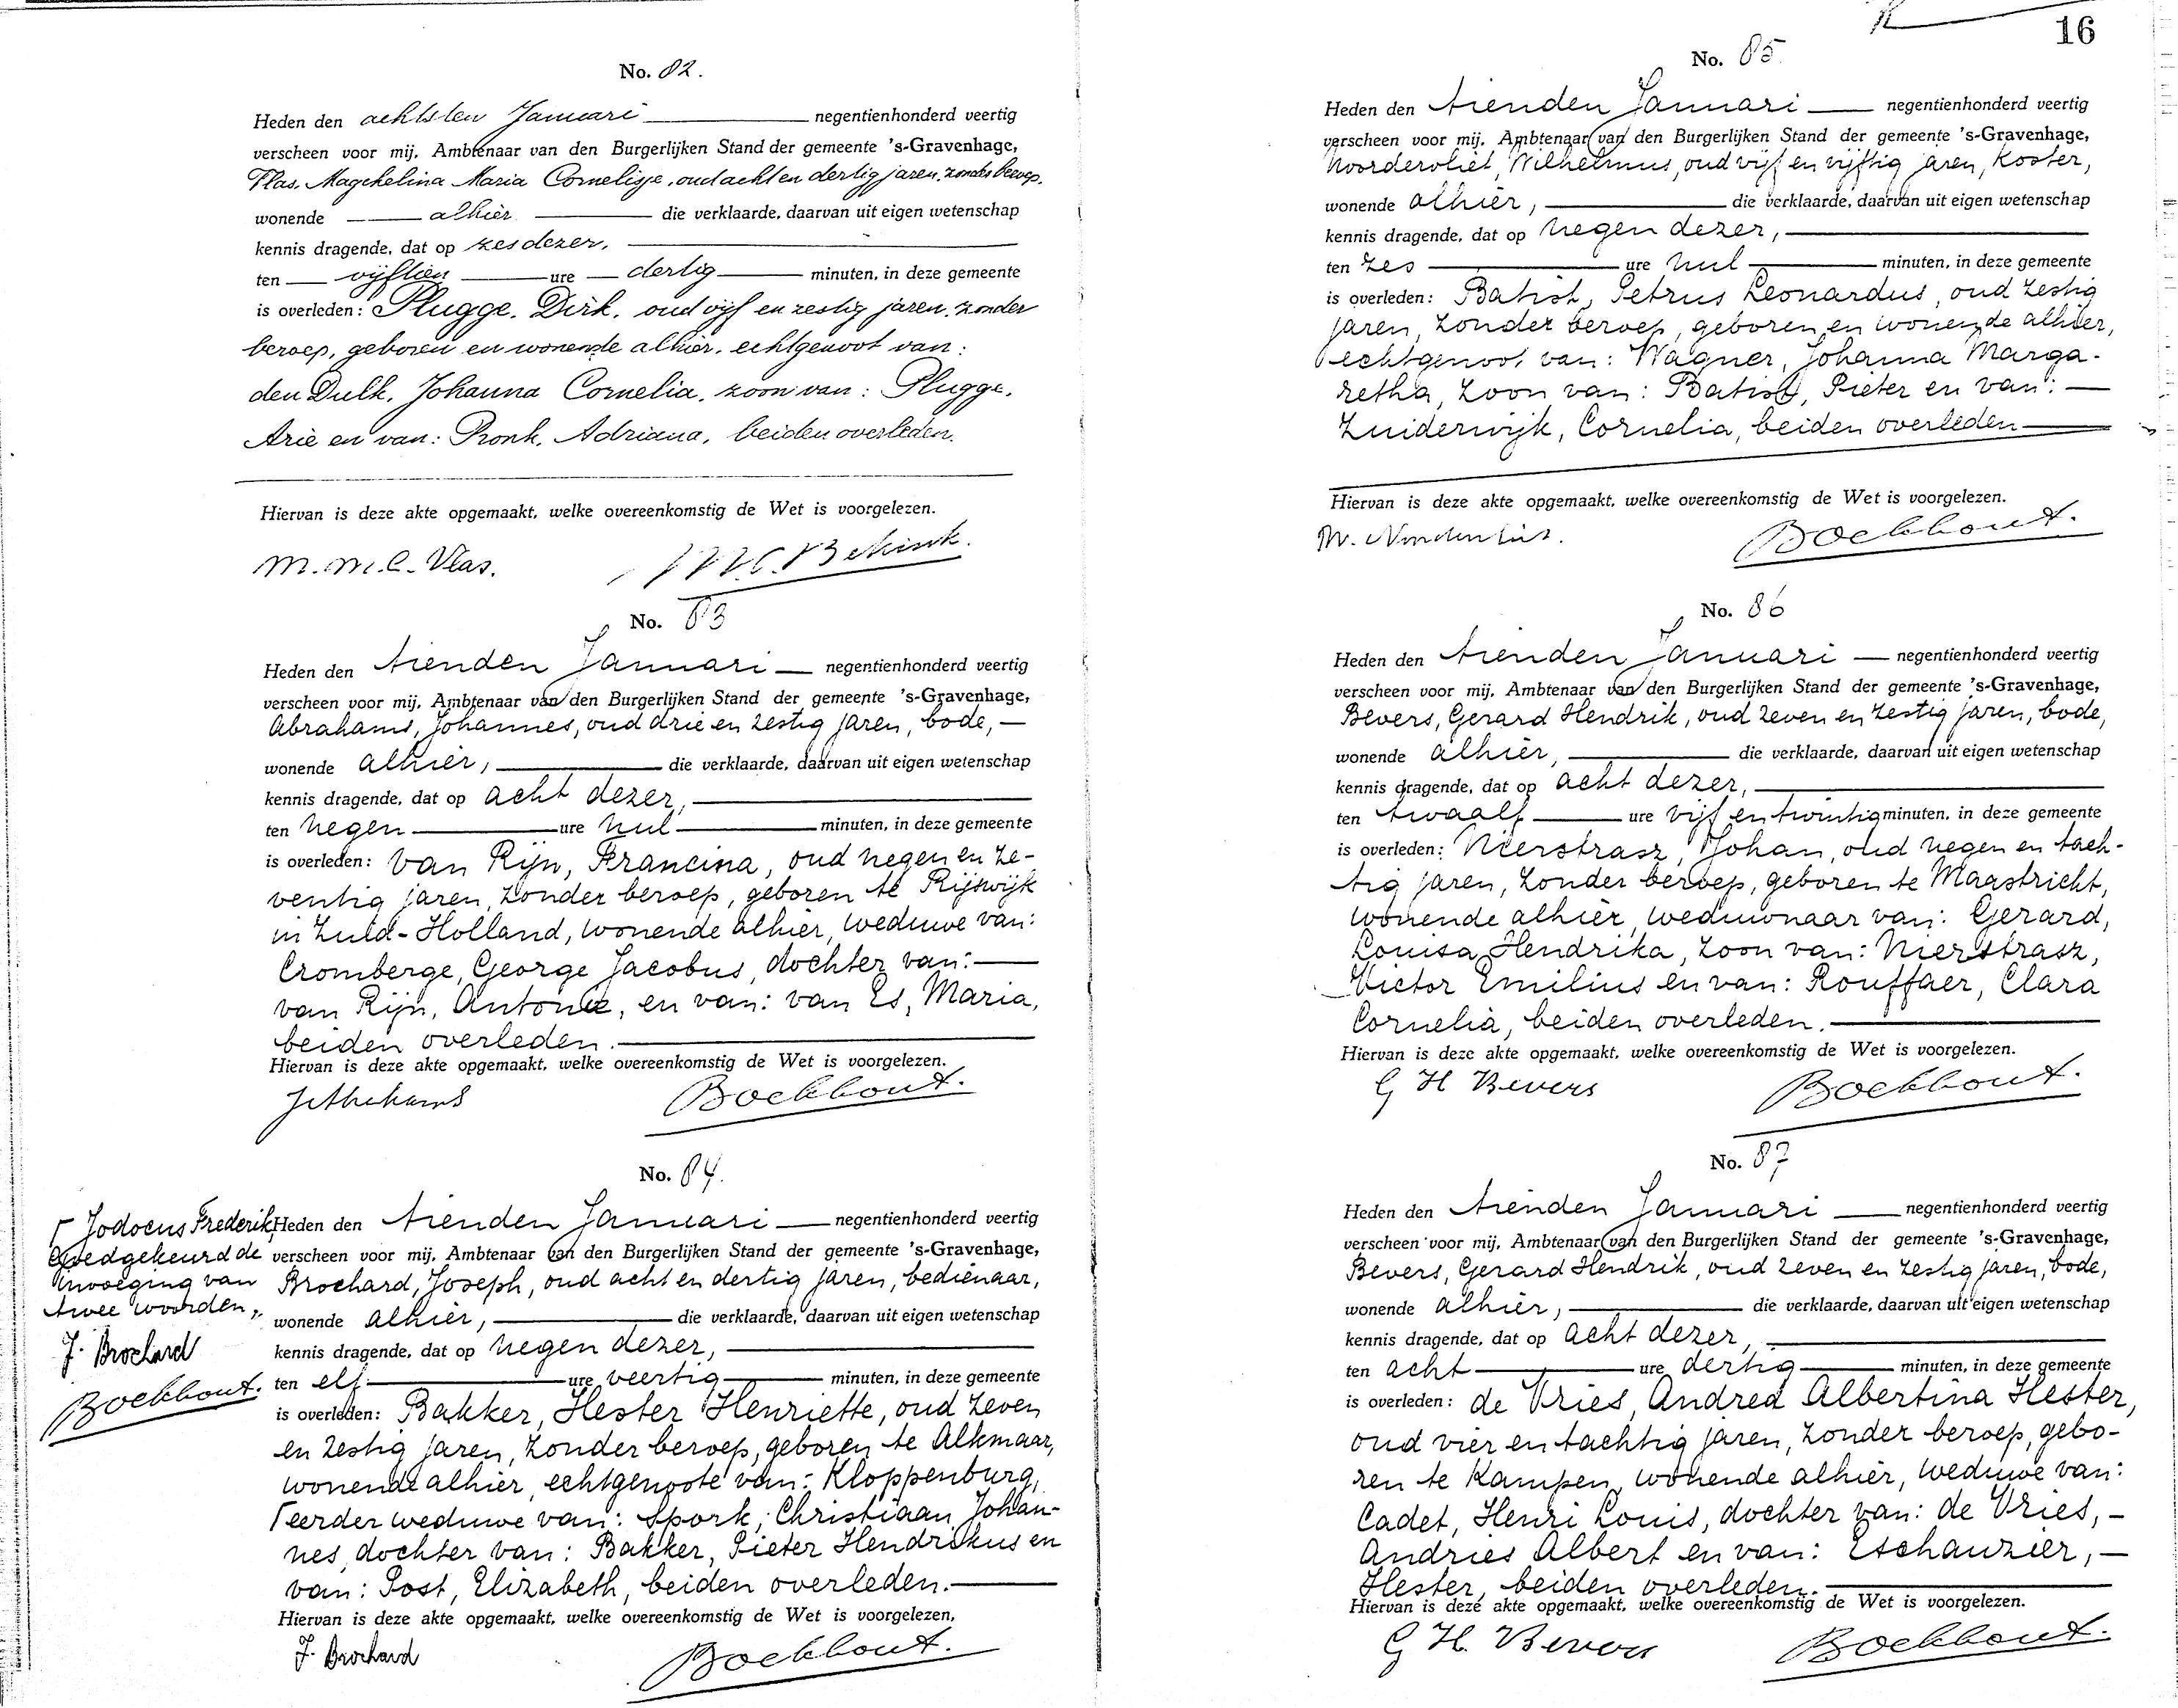 No. 82.
Heden den achtsten Januari negentienhonderd veertig
verscheen voor mij, Ambtenaar van den Burgerlijken Stand der gemeente 's-Gravenhage,
Vlas, Magchelina Maria Cornelisje, oud acht en dertig jaren, zonder beroep,
wonende alhier die verklaarde, daarvan uit eigen wetenschap
kennis dragende, dat op zes dezer,
ten vijftien ure dertig minuten, in deze gemeente
is overleden: Plugge, Dirk, oud vijf en zestig jaren, zonder
beroep, geboren en wonende alhier, echtgenoot van:
den Dulk, Johanna Cornelia, zoon van: Plugge,
Arie en van: Pronk, Adriana, beiden overleden.
Hiervan is deze akte opgemaakt, welke overeenkomstig de Wet is voorgelezen.
M. M. C. Vlas.
No. 83
Heden den tienden Januari negentienhonderd veertig
verscheen voor mij, Ambtenaar van den Burgerlijken Stand der gemeente 's-Gravenhage,
Abrahams, Johannes, oud drie en zestig jaren, bode,
wonende alhier, die verklaarde, daarvan uit eigen wetenschap
kennis dragende, dat op acht dezer,
ten negen ure nul minuten, in deze gemeente
is overleden: van Rijn, Francina, oud negen en ze-
ventig jaren, zonder beroep, geboren te Rijswijk
in Zuid-Holland, wonende alhier, weduwe van:
Cromberge, George Jacobus, dochter van:
van Rijn, Antonie, en van: van Es, Maria,
beiden overleden.
Hiervan is deze akte opgemaakt, welke overeenkomstig de Wet is voorgelezen.
JAbrahams Boekhout.
No. 84.
Heden den tienden Januari negentienhonderd veertig
verscheen voor mij, Ambtenaar van den Burgerlijken Stand der gemeente 's-Gravenhage,
Brochard, Joseph, oud acht en dertig jaren, bedienaar,
wonende alhier, die verklaarde, daarvan uit eigen wetenschap
kennis dragende, dat op negen dezer,
ten elf ure veertig minuten, in deze gemeente
is overleden: Bakker, Hester Henriette, oud zeven
en zestig jaren, zonder beroep, geboren te Alkmaar,
wonende alhier, echtgenoote van: Kloppenburg,
Γ eerder weduwe van: Spork, Christiaan Johan-
nes, dochter van: Bakker, Pieter Hendrikus en
van: Post, Elizabeth, beiden overleden.
Hiervan is deze akte opgemaakt, welke overeenkomstig de Wet is voorgelezen,
J. Brochard Boekhout.
Γ Jodocus Frederik,
Goedgekeurd de
invoeging van
twee woorden,
J. Brochard
Boekhout.
16
No. 85
Heden den tienden Januari negentienhonderd veertig
verscheen voor mij, Ambtenaar van den Burgerlijken Stand der gemeente 's-Gravenhage,
Noordervliet, Wilhelmus, oud vijf en vijftig jaren, koster,
wonende alhier, die verklaarde, daarvan uit eigen wetenschap
kennis dragende, dat op negen dezer,
ten zes ure nul minuten, in deze gemeente
is overleden: Batist, Petrus Leonardus, oud zestig
jaren, zonder beroep, geboren en wonende alhier,
echtgenoot van: Wagner, Johanna Marga-
retha, zoon van: Batist, Pieter en van:
Zuiderwijk, Cornelia, beiden overleden
Hiervan is deze akte opgemaakt, welke overeenkomstig de Wet is voorgelezen.
Boekhout.
No. 86
Heden den tienden Januari negentienhonderd veertig
verscheen voor mij, Ambtenaar van den Burgerlijken Stand der gemeente 's-Gravenhage,
Bevers, Gerard Hendrik, oud zeven en zestig jaren, bode,
wonende alhier, die verklaarde, daarvan uit eigen wetenschap
kennis dragende, dat op acht dezer,
ten twaalf ure vijf en twintig minuten, in deze gemeente
is overleden: Nierstrasz, Johan, oud negen en tach-
tig jaren, zonder beroep, geboren te Maastricht,
wonende alhier, weduwnaar van: Gerard,
Louisa Hendrika, zoon van: Nierstrasz,
Victor Emilius en van: Rouffaer, Clara
Cornelia, beiden overleden.
Hiervan is deze akte opgemaakt, welke overeenkomstig de Wet is voorgelezen.
G H Bevers Boekhout.
No. 87
Heden den tienden Januari negentienhonderd veertig
verscheen voor mij, Ambtenaar van den Burgerlijken Stand der gemeente 's-Gravenhage,
Bevers, Gerard Hendrik, oud zeven en zestig jaren, bode,
wonende alhier, die verklaarde, daarvan uit eigen wetenschap
kennis dragende, dat op acht dezer,
ten acht ure dertig minuten, in deze gemeente
is overleden: de Vries, Andrea Albertina Hester,
oud vier en tachtig jaren, zonder beroep, gebo-
ren te Kampen, wonende alhier, weduwe van:
Cadet, Henri Louis, dochter van: de Vries,
Andries Albert en van: Eschauzier,
Hester, beiden overleden.
Hiervan is deze akte opgemaakt, welke overeenkomstig de Wet is voorgelezen.
G H. Bevers Boekhout.